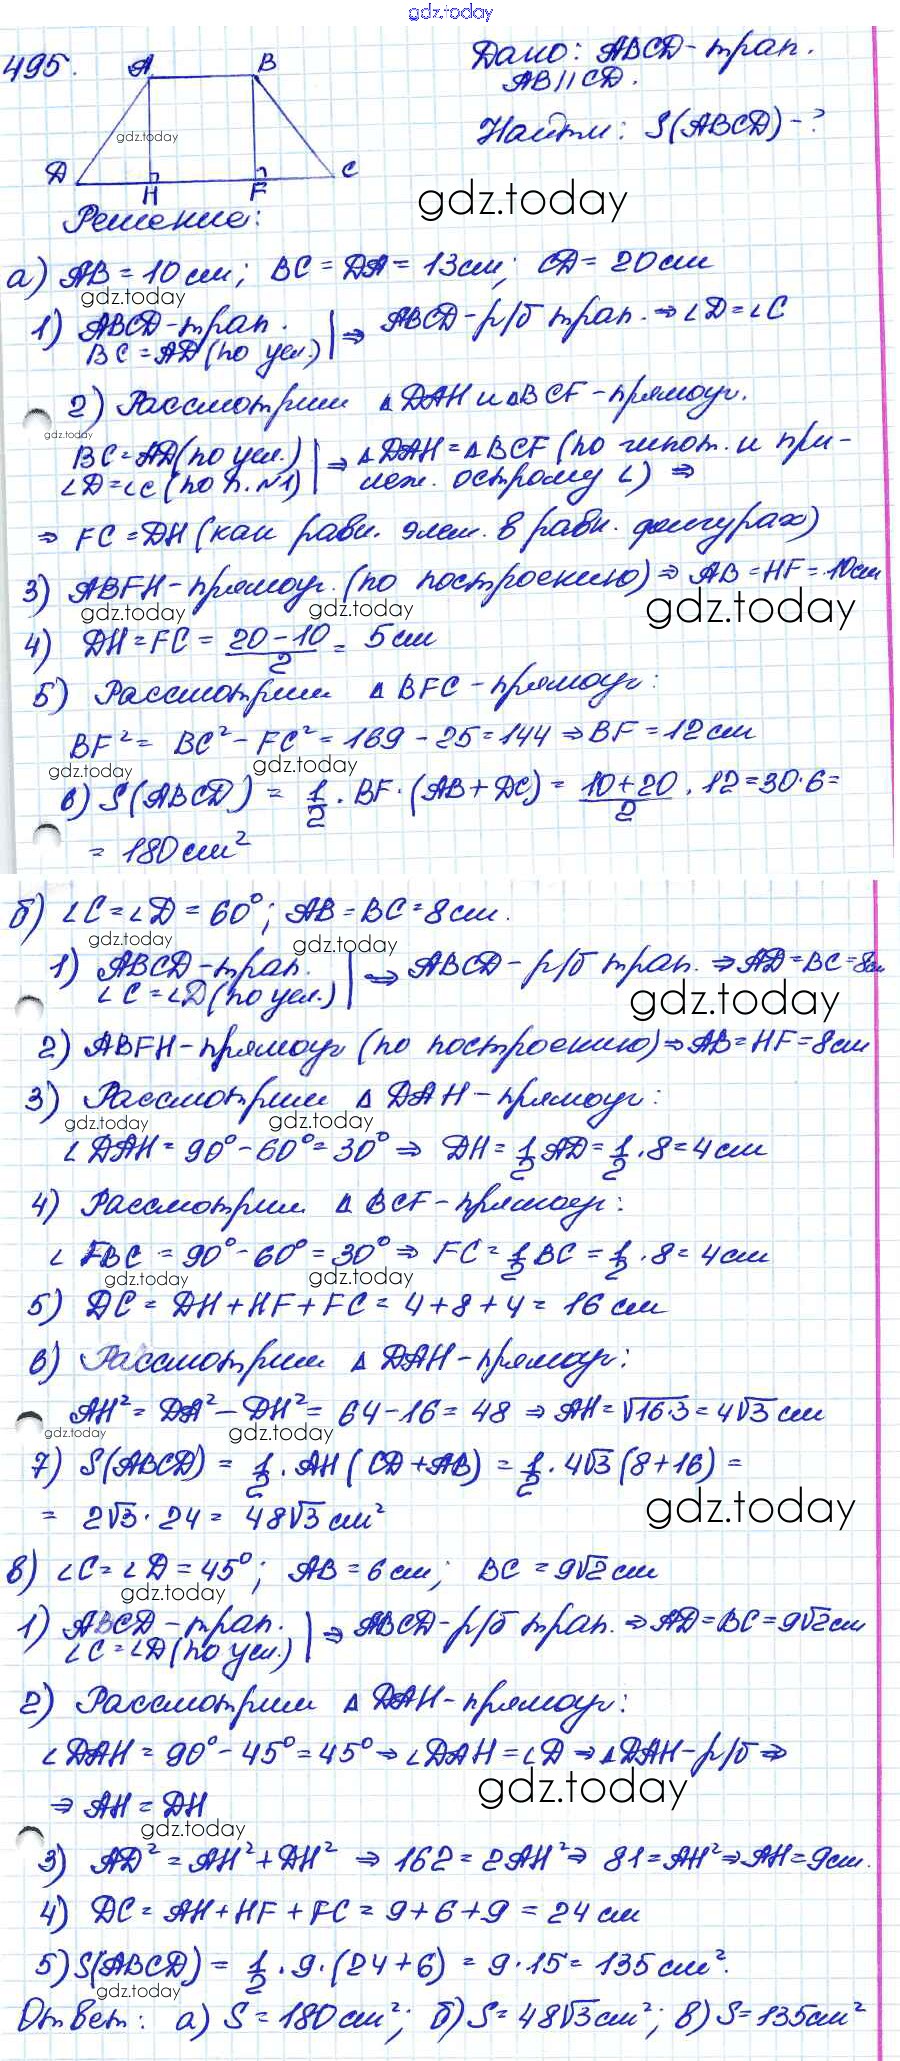 gdz.today
495.
A B
Дано: ABCD-трап.
AB||CD.
gdz.today
Найти: S(ABCD)-?
D H F C
gdz.today
Решение:
а) AB=10см; BC=DA=13см; CD=20см
gdz.today
1) ABCD-трап. | ⇒ ABCD-р/б трап. ⇒ ∠D=∠C
BC=AD(по усл.)
2) Рассмотрим △DAH и △BCF-прямоуг.
gdz.today
BC=AD(по усл.) | ⇒ △DAH=△BCF (по гипот. и при-
∠D=∠C(по п.№1) леж. острому ∠) ⇒
⇒ FC=DH (как равн. элем. в равн. фигурах)
3) ABFH-прямоуг. (по построению) ⇒ AB=HF=10см
gdz.today gdz.today gdz.today
4) DH=FC= (20-10)/2 = 5см
5) Рассмотрим △BFC-прямоуг:
BF²= BC²-FC²=169-25=144 ⇒ BF=12см
gdz.today gdz.today
6) S(ABCD) = 1/2·BF·(AB+DC) = (10+20)/2·12=30·6=
= 180см²
б) ∠C=∠D=60°; AB=BC=8см.
gdz.today gdz.today
1) ABCD-трап. | ⇒ ABCD-р/б трап. ⇒ AD=BC=8см
∠C=∠D(по усл.)
gdz.today
2) ABFH-прямоуг (по построению) ⇒ AB=HF=8см
3) Рассмотрим △DAH-прямоуг:
gdz.today gdz.today
∠DAH=90°-60°=30° ⇒ DH=1/2AD=1/2·8=4см
4) Рассмотрим △BCF-прямоуг:
∠FBC=90°-60°=30° ⇒ FC=1/2BC=1/2·8=4см
gdz.today gdz.today
5) DC=DH+HF+FC=4+8+4=16см
6) Рассмотрим △DAH-прямоуг:
AH²=DA²-DH²=64-16=48 ⇒ AH=√16·3=4√3см
gdz.today gdz.today
7) S(ABCD) = 1/2·AH(CD+AB) = 1/2·4√3(8+16) =
= 2√3·24=48√3см²
gdz.today
в) ∠C=∠D=45°; AB=6см; BC=9√2см
gdz.today
1) ABCD-трап. | ⇒ ABCD-р/б трап. ⇒ AD=BC=9√2см
∠C=∠D(по усл.)
2) Рассмотрим △DAH-прямоуг:
∠DAH=90°-45°=45° ⇒ ∠DAH=∠D ⇒ △DAH-р/б ⇒
gdz.today
⇒ AH=DH
gdz.today
3) AD²=AH²+DH² ⇒ 162=2AH² ⇒ 81=AH² ⇒ AH=9см.
4) DC=AH+HF+FC=9+6+9=24см
5) S(ABCD) = 1/2·9·(24+6) = 9·15=135см².
gdz.today
Ответ: а) S=180см²; б) S=48√3см²; в) S=135см²